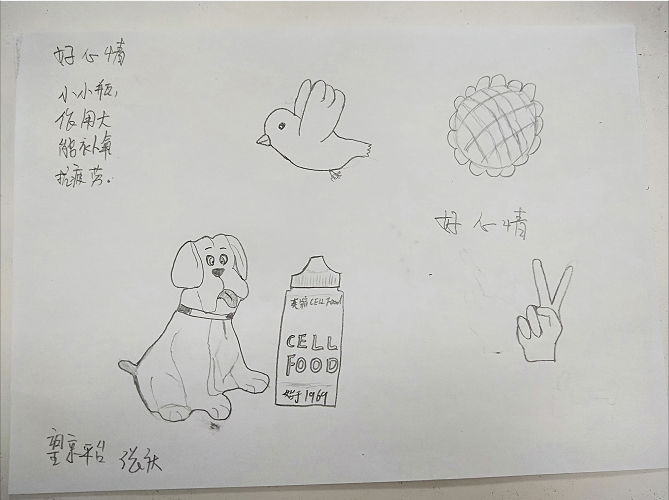 好心情
小小瓶，
作用大
能补氧
抗疲劳。
好心情
CELL Food
CELL
FOOD
始于1969
望京平台